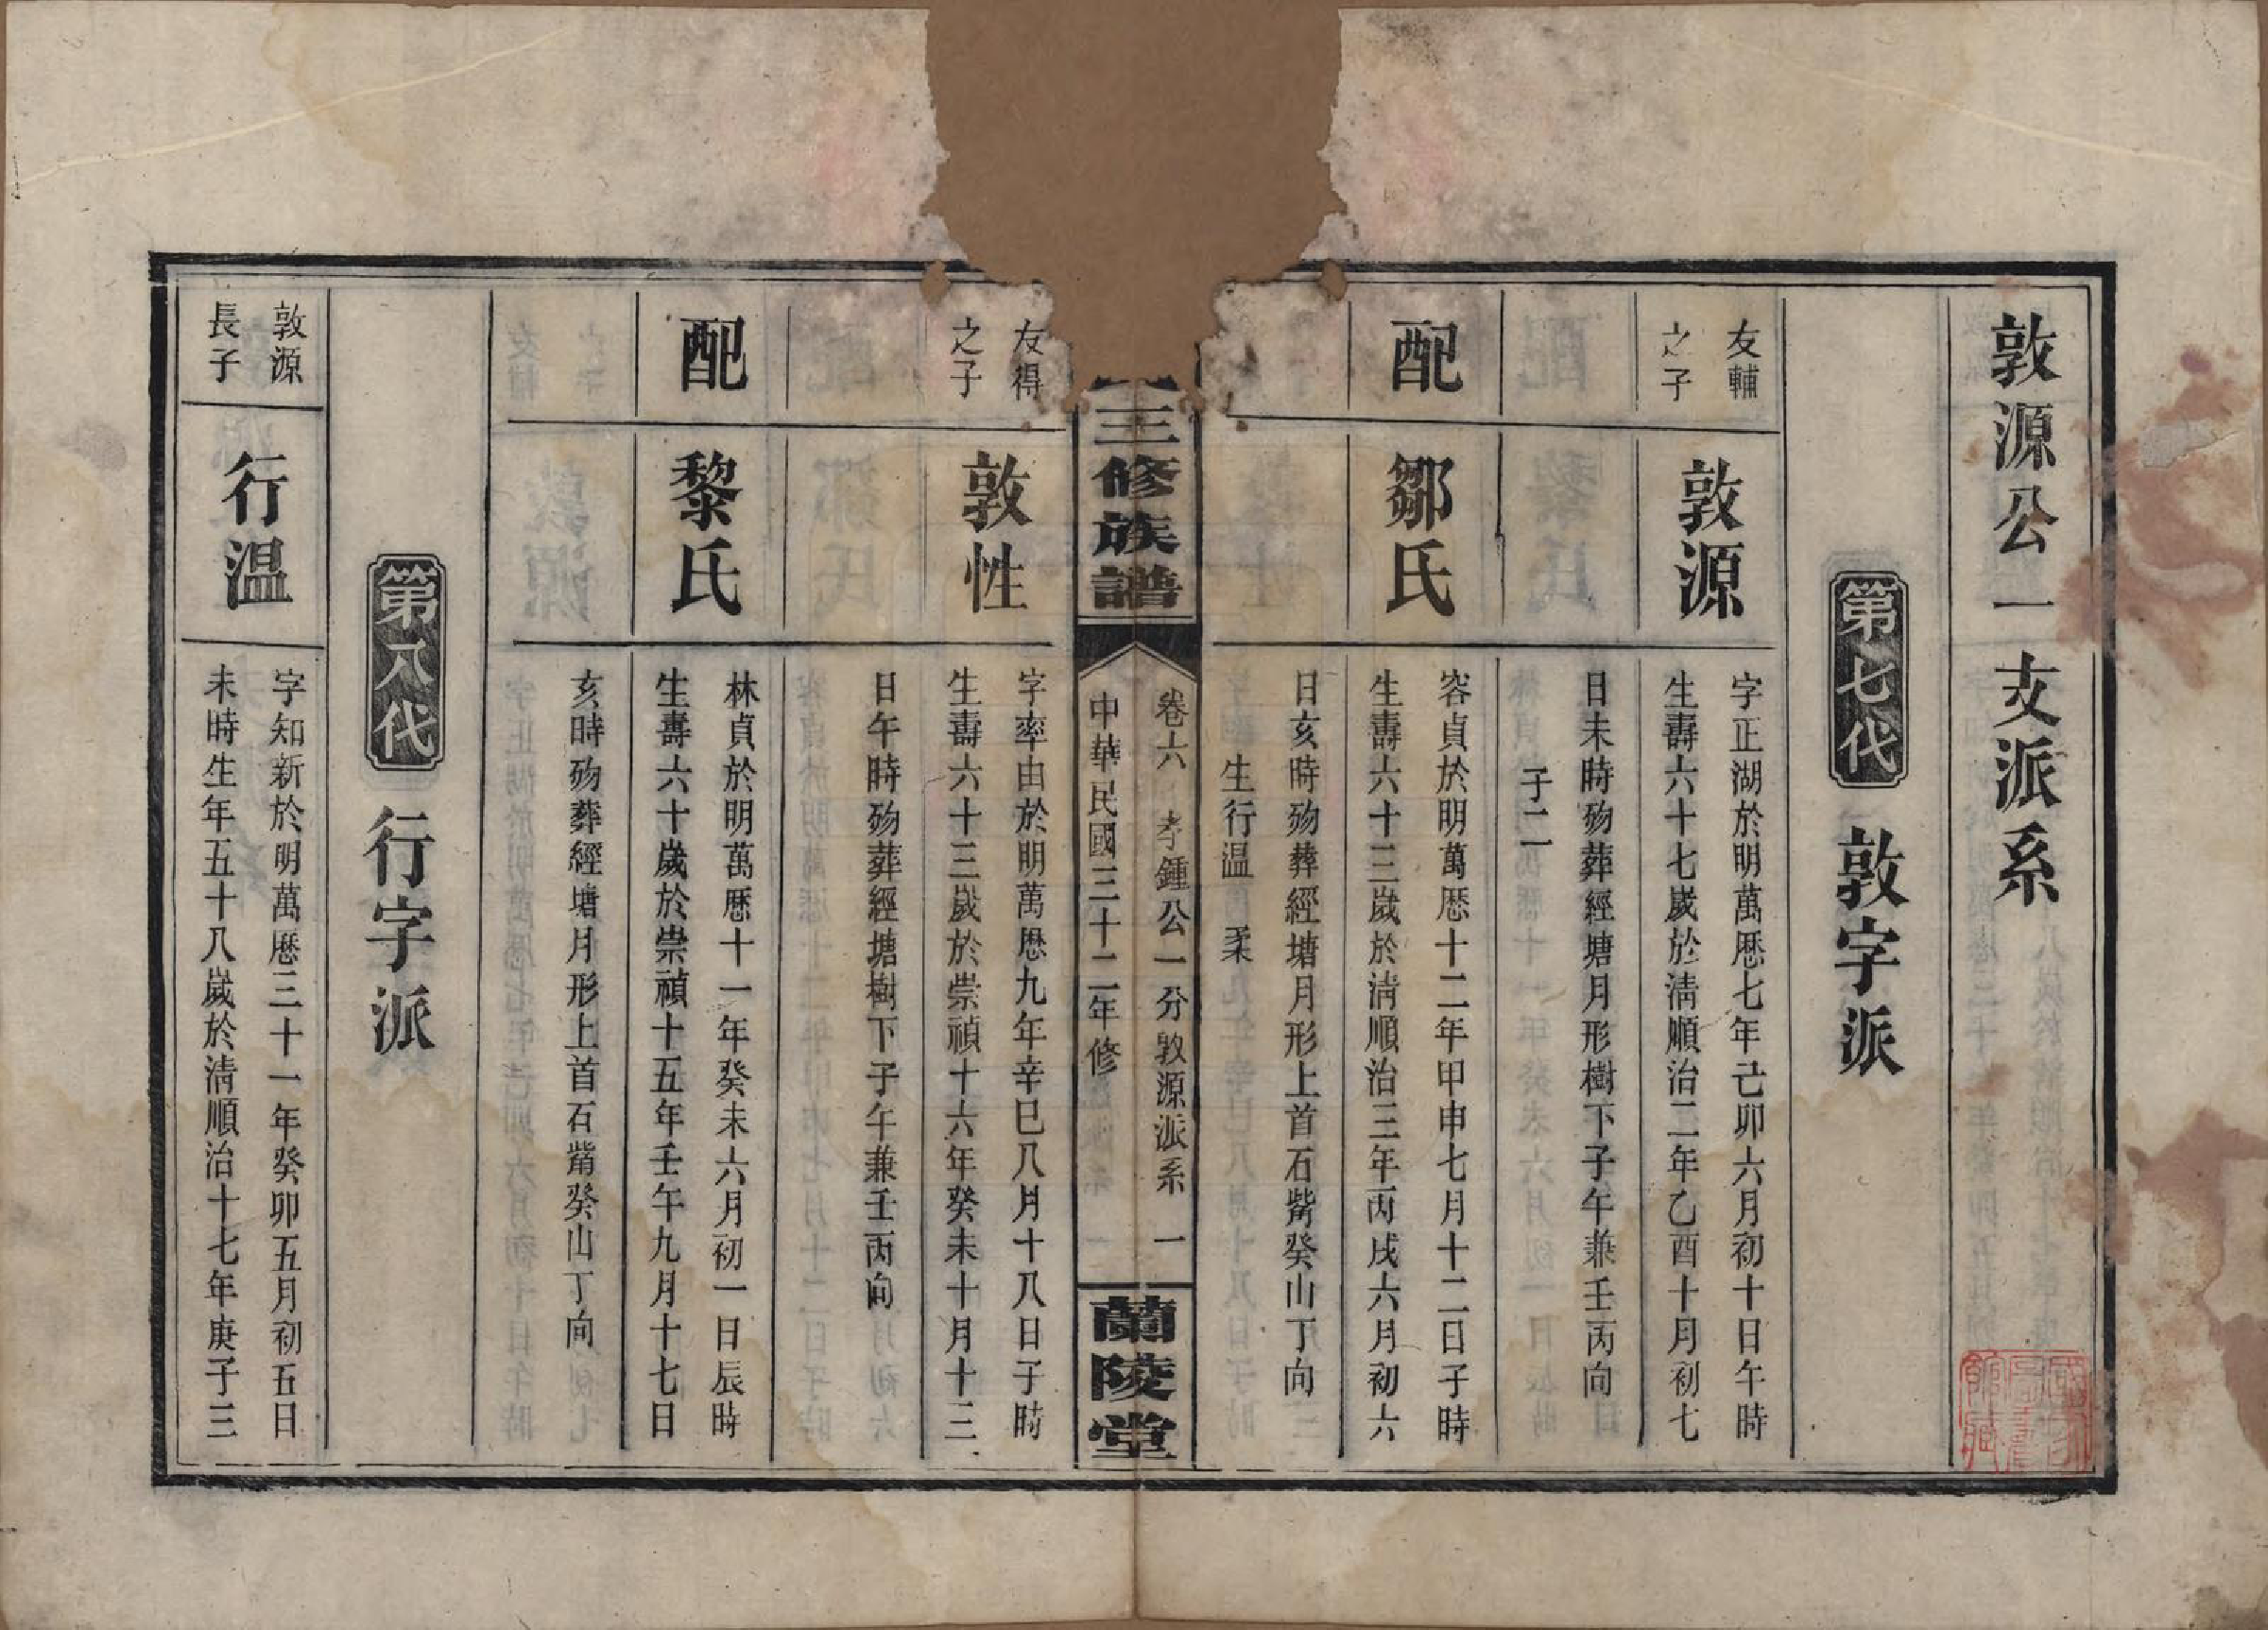 敦源公一支派系
第七代 敦字派
友輔
之子
敦源
字正湖於明萬曆七年己卯六月初十日午時
生壽六十七歲於清順治二年乙酉十月初七
日未時殁葬經塘月形樹下子午兼壬丙向
子二
配
鄒氏
容貞於明萬曆十二年甲申七月十二日子時
生壽六十三歲於清順治三年丙戌六月初六
日亥時殁葬經塘月形上首石觜癸山丁向
生行溫 柔
三修族譜
卷六 李鍾公一分敦源派系 一
中華民國三十二年修
蘭陵堂
友得
之子
敦性
字率由於明萬曆九年辛巳八月十八日子時
生壽六十三歲於崇禎十六年癸未十月十三
日午時殁葬經塘樹下子午兼壬丙向
配
黎氏
林貞於明萬曆十一年癸未六月初一日辰時
生壽六十歲於崇禎十五年壬午九月十七日
亥時殁葬經塘月形上首石觜癸山丁向
第八代 行字派
敦源
長子
行溫
字知新於明萬曆三十一年癸卯五月初五日
未時生年五十八歲於清順治十七年庚子三